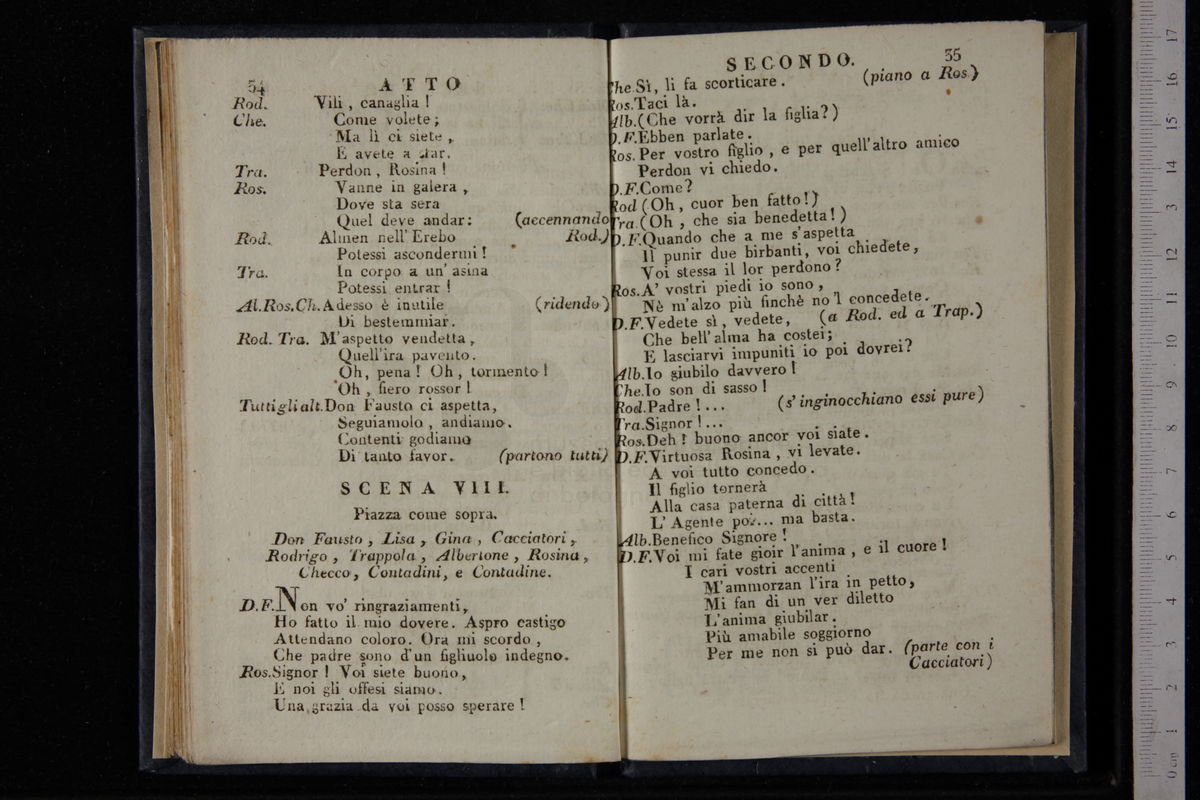 54
ATTO
Rod. Vili, canaglia!
Che. Come volete;
Ma lì ci siete,
E avete a star.
Tra. Perdon, Rosina!
Ros. Vanne in galera,
Dove sta sera
Quel deve andar: (accennando
Rod. Almen nell'Erebo Rod.)
Potessi ascondermi!
Tra. In corpo a un' asina
Potessi entrar!
Al.Ros.Ch. Adesso è inutile (ridendo)
Di bestemmiar.
Rod. Tra. M'aspetto vendetta,
Quell'ira pavento.
Oh, pena! Oh, tormento!
Oh, fiero rossor!
Tutti gli alt. Don Fausto ci aspetta,
Seguiamolo, andiamo.
Contenti godiamo
Di tanto favor. (partono tutti)
SCENA VIII.
Piazza come sopra.
Don Fausto, Lisa, Gina, Cacciatori,
Rodrigo, Trappola, Albertone, Rosina,
Checco, Contadini, e Contadine.
D.F. Non vo' ringraziamenti,
Ho fatto il mio dovere. Aspro castigo
Attendano coloro. Ora mi scordo,
Che padre sono d'un figliuolo indegno.
Ros. Signor! Voi siete buono,
E noi gli offesi siamo.
Una grazia da voi posso sperare!
SECONDO.
35
Che. Sì, li fa scorticare. (piano a Ros.)
Ros. Taci là.
Alb. (Che vorrà dir la figlia?)
D.F. Ebben parlate.
Ros. Per vostro figlio, e per quell'altro amico
Perdon vi chiedo.
D.F. Come?
Rod (Oh, cuor ben fatto!)
Tra. (Oh, che sia benedetta!)
D.F. Quando che a me s'aspetta
Il punir due birbanti, voi chiedete,
Voi stessa il lor perdono?
Ros. A' vostri piedi io sono,
Nè m'alzo più finchè no'l concedete.
D.F. Vedete sì, vedete, (a Rod. ed a Trap.)
Che bell'alma ha costei;
E lasciarvi impuniti io poi dovrei?
Alb. Io giubilo davvero!
Che. Io son di sasso!
Rod. Padre!... (s'inginocchiano essi pure)
Tra. Signor!...
Ros. Deh! buono ancor voi siate.
D.F. Virtuosa Rosina, vi levate.
A voi tutto concedo.
Il figlio tornerà
Alla casa paterna di città!
L'Agente poi... ma basta.
Alb. Benefico Signore!
D.F. Voi mi fate gioir l'anima, e il cuore!
I cari vostri accenti
M'ammorzan l'ira in petto,
Mi fan di un ver diletto
L'anima giubilar.
Più amabile soggiorno
Per me non si può dar. (parte con i
Cacciatori)
0 cm 1 2 3 4 5 6 7 8 9 10 11 12 13 14 15 16 17